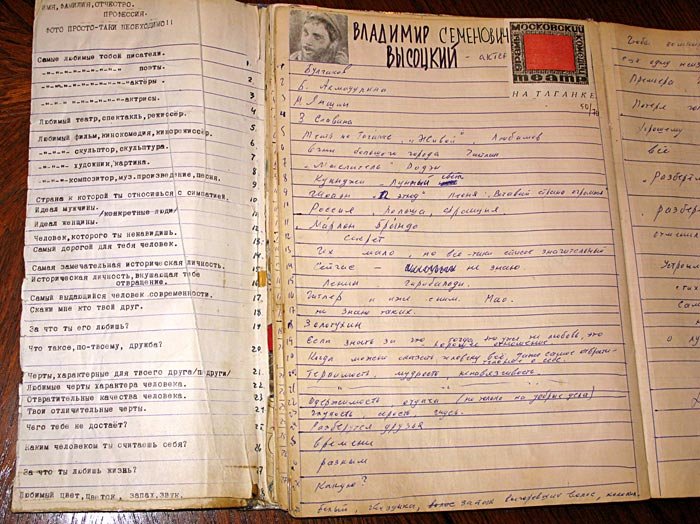 ИМЯ, ФАМИЛИЯ, ОТЧЕСТВО.
ПРОФЕССИЯ.
ФОТО ПРОСТО-ТАКИ НЕОБХОДИМО!!
Самые любимые тобой писатели. 1.
-"-"-"-"-"-"-"- поэты. 2.
-"-"-"-"-"-"-"- актёры. 3.
-"-"-"-"-"-"-"- актрисы. 4.
Любимый театр, спектакль, режиссёр. 5
Любимый фильм, кинокомедия, кинорежиссёр. 6
-"-"- скульптор, скульптура. 7
-"-"- художник, картина. 8
-"-"-композитор, муз.произведение, песня. 9
Страна к которой ты относишься с симпатией. 10
Идеал мужчины. 11
/конкретные люди/
Идеал женщины. 12
Человек, которого ты ненавидишь. 13
Самый дорогой для тебя человек. 14
Самая замечательная историческая личность. 15
Историческая личность, внушающая тебе
отвращение. 16
Самый выдающийся человек современности. 17
Скажи мне кто твой друг. 18
За что ты его любишь? 19
Что такое, по-твоему, дружба? 20
Черты, характерные для твоего друга/подруги/ 21
Любимые черты характера человека. 22
Отвратительные качества человека. 23
Твои отличительные черты. 24
Чего тебе не достаёт? 25
Каким человеком ты считаешь себя? 26
За что ты любишь жизнь? 27
Любимый цвет, цветок, запах, звук.
ВЛАДИМИР СЕМЕНОВИЧ
ВЫСОЦКИЙ - актёр
МОСКОВСКИЙ
ТЕАТР
НА ТАГАНКЕ
Булгаков
Б. Ахмадулина
М. Яншин
З. Славина
Театр на Таганке, "Живой", Любимов
Огни большого города Чаплин
"Мыслитель" Роден
Куинджи "Лунный свет"
Шопен "12 этюд" Песня "Вставай страна огромная"
Россия, Польша, Франция
Марлон Брандо
Секрет
Их мало, но все-таки список значительный
Сейчас - не знаю
Ленин Гарибальди.
Гитлер и иже с ним. Мао.
не знаю таких.
Золотухин
Если знать за что, тогда это уже не любовь, это
хорошее отношение
Когда можно сказать человеку всё, даже самое отврати-
тельное о себе.
Терпимость, мудрость, ненавязчивость.
Одержимость, отдача (но только на добрые дела)
Глупость, серость, гнусь.
Разберутся друзья
Времени
разным
Какую?